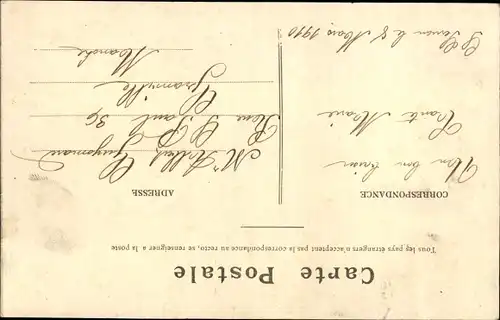 Carte Postale
Tous les pays étrangers n'acceptent pas la correspondance au recto, se renseigner à la poste
CORRESPONDANCE
Mon bon
Tante Marie
le 8 Mars 1910
ADRESSE
Rue St Paul 39
Granville
Manche